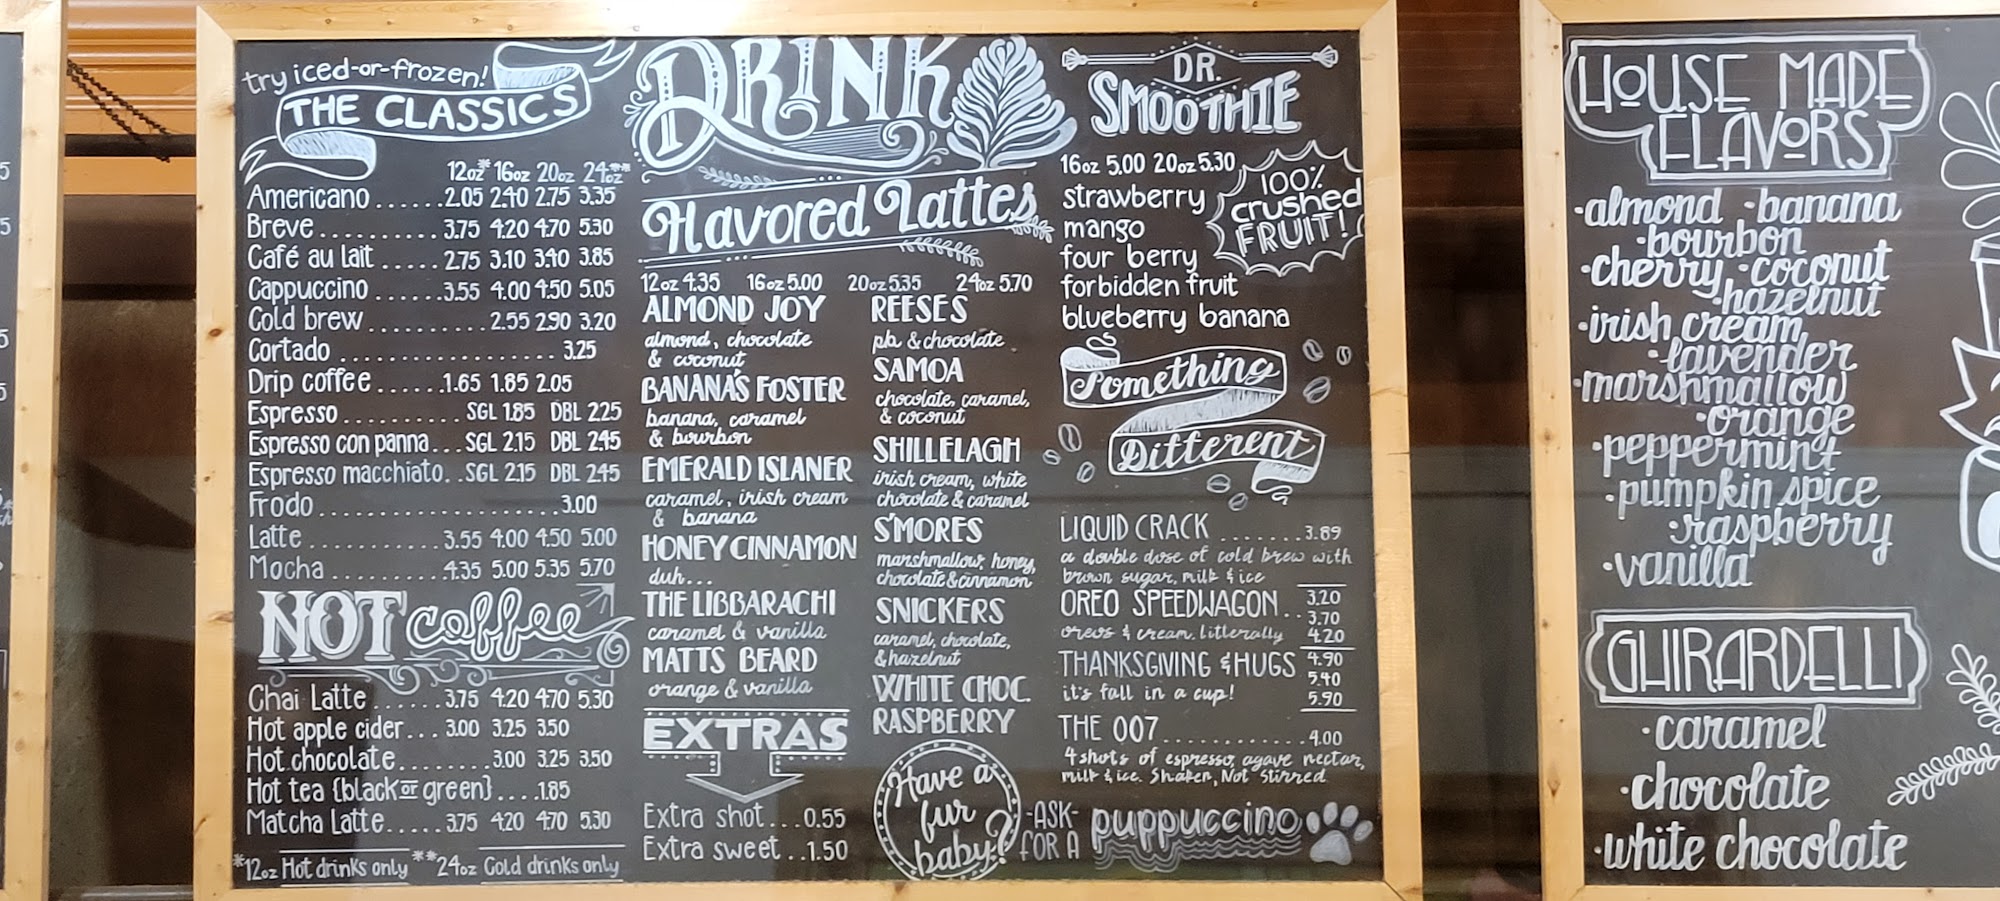 try iced-or-frozen!
THE CLASSICS
12oz* 16oz 20oz 24oz**
Americano ......2.05 2.40 2.75 3.35
Breve .......... 3.75 4.20 4.70 5.30
Café au lait ..... 2.75 3.10 3.40 3.85
Cappuccino ......3.55 4.00 4.50 5.05
Cold brew .......... 2.55 2.90 3.20
Cortado .................. 3.25
Drip coffee ......1.65 1.85 2.05
Espresso ......... SGL 1.85 DBL 2.25
Espresso con panna... SGL 2.15 DBL 2.45
Espresso macchiato..SGL 2.15 DBL 2.45
Frodo .................... 3.00
Latte .......... 3.55 4.00 4.50 5.00
Mocha .........4.35 5.00 5.35 5.70
NOT coffee
Chai Latte ....... 3.75 4.20 4.70 5.30
Hot apple cider... 3.00 3.25 3.50
Hot chocolate........3.00 3.25 3.50
Hot tea {black or green}....1.85
Matcha Latte..... 3.75 4.20 4.70 5.30
*12oz Hot drinks only **24oz Cold drinks only
DRINK
Flavored Lattes
12oz 4.35 16oz 5.00 20oz 5.35 24oz 5.70
ALMOND JOY
almond, chocolate
& coconut
BANANA'S FOSTER
banana, caramel
& bourbon
EMERALD ISLANER
caramel, irish cream
& banana
HONEY CINNAMON
duh...
THE LIBBARACHI
caramel & vanilla
MATTS BEARD
orange & vanilla
EXTRAS
Extra shot...0.55
Extra sweet..1.50
REESES
pb & chocolate
SAMOA
chocolate, caramel,
& coconut
SHILLELAGH
irish cream, white
chocolate & caramel
S'MORES
marshmallow, honey,
chocolate & cinnamon
SNICKERS
caramel, chocolate,
& hazelnut
WHITE CHOC.
RASPBERRY
Have a
fur
baby?
-ASK-
FOR A
puppuccino
DR.
SMOOTHIE
16oz 5.00 20oz 5.30
strawberry
mango
four berry
forbidden fruit
blueberry banana
100%
crushed
FRUIT!
Something
Different
LIQUID CRACK .......3.89
a double dose of cold brew with
brown sugar, milk & ice
OREO SPEEDWAGON .. 3.20
3.70
oreos & cream. litterally 4.20
THANKSGIVING & HUGS 4.90
it's fall in a cup! 5.40
5.90
THE 007............4.00
4 shots of espresso, agave nectar,
milk & ice. Shaken, Not Stirred
HOUSE MADE
FLAVORS
•almond •banana
•bourbon
•cherry •coconut
•hazelnut
•irish cream
•lavender
•marshmallow
•orange
•peppermint
•pumpkin spice
•raspberry
•vanilla
GHIRARDELLI
•caramel
•chocolate
•white chocolate